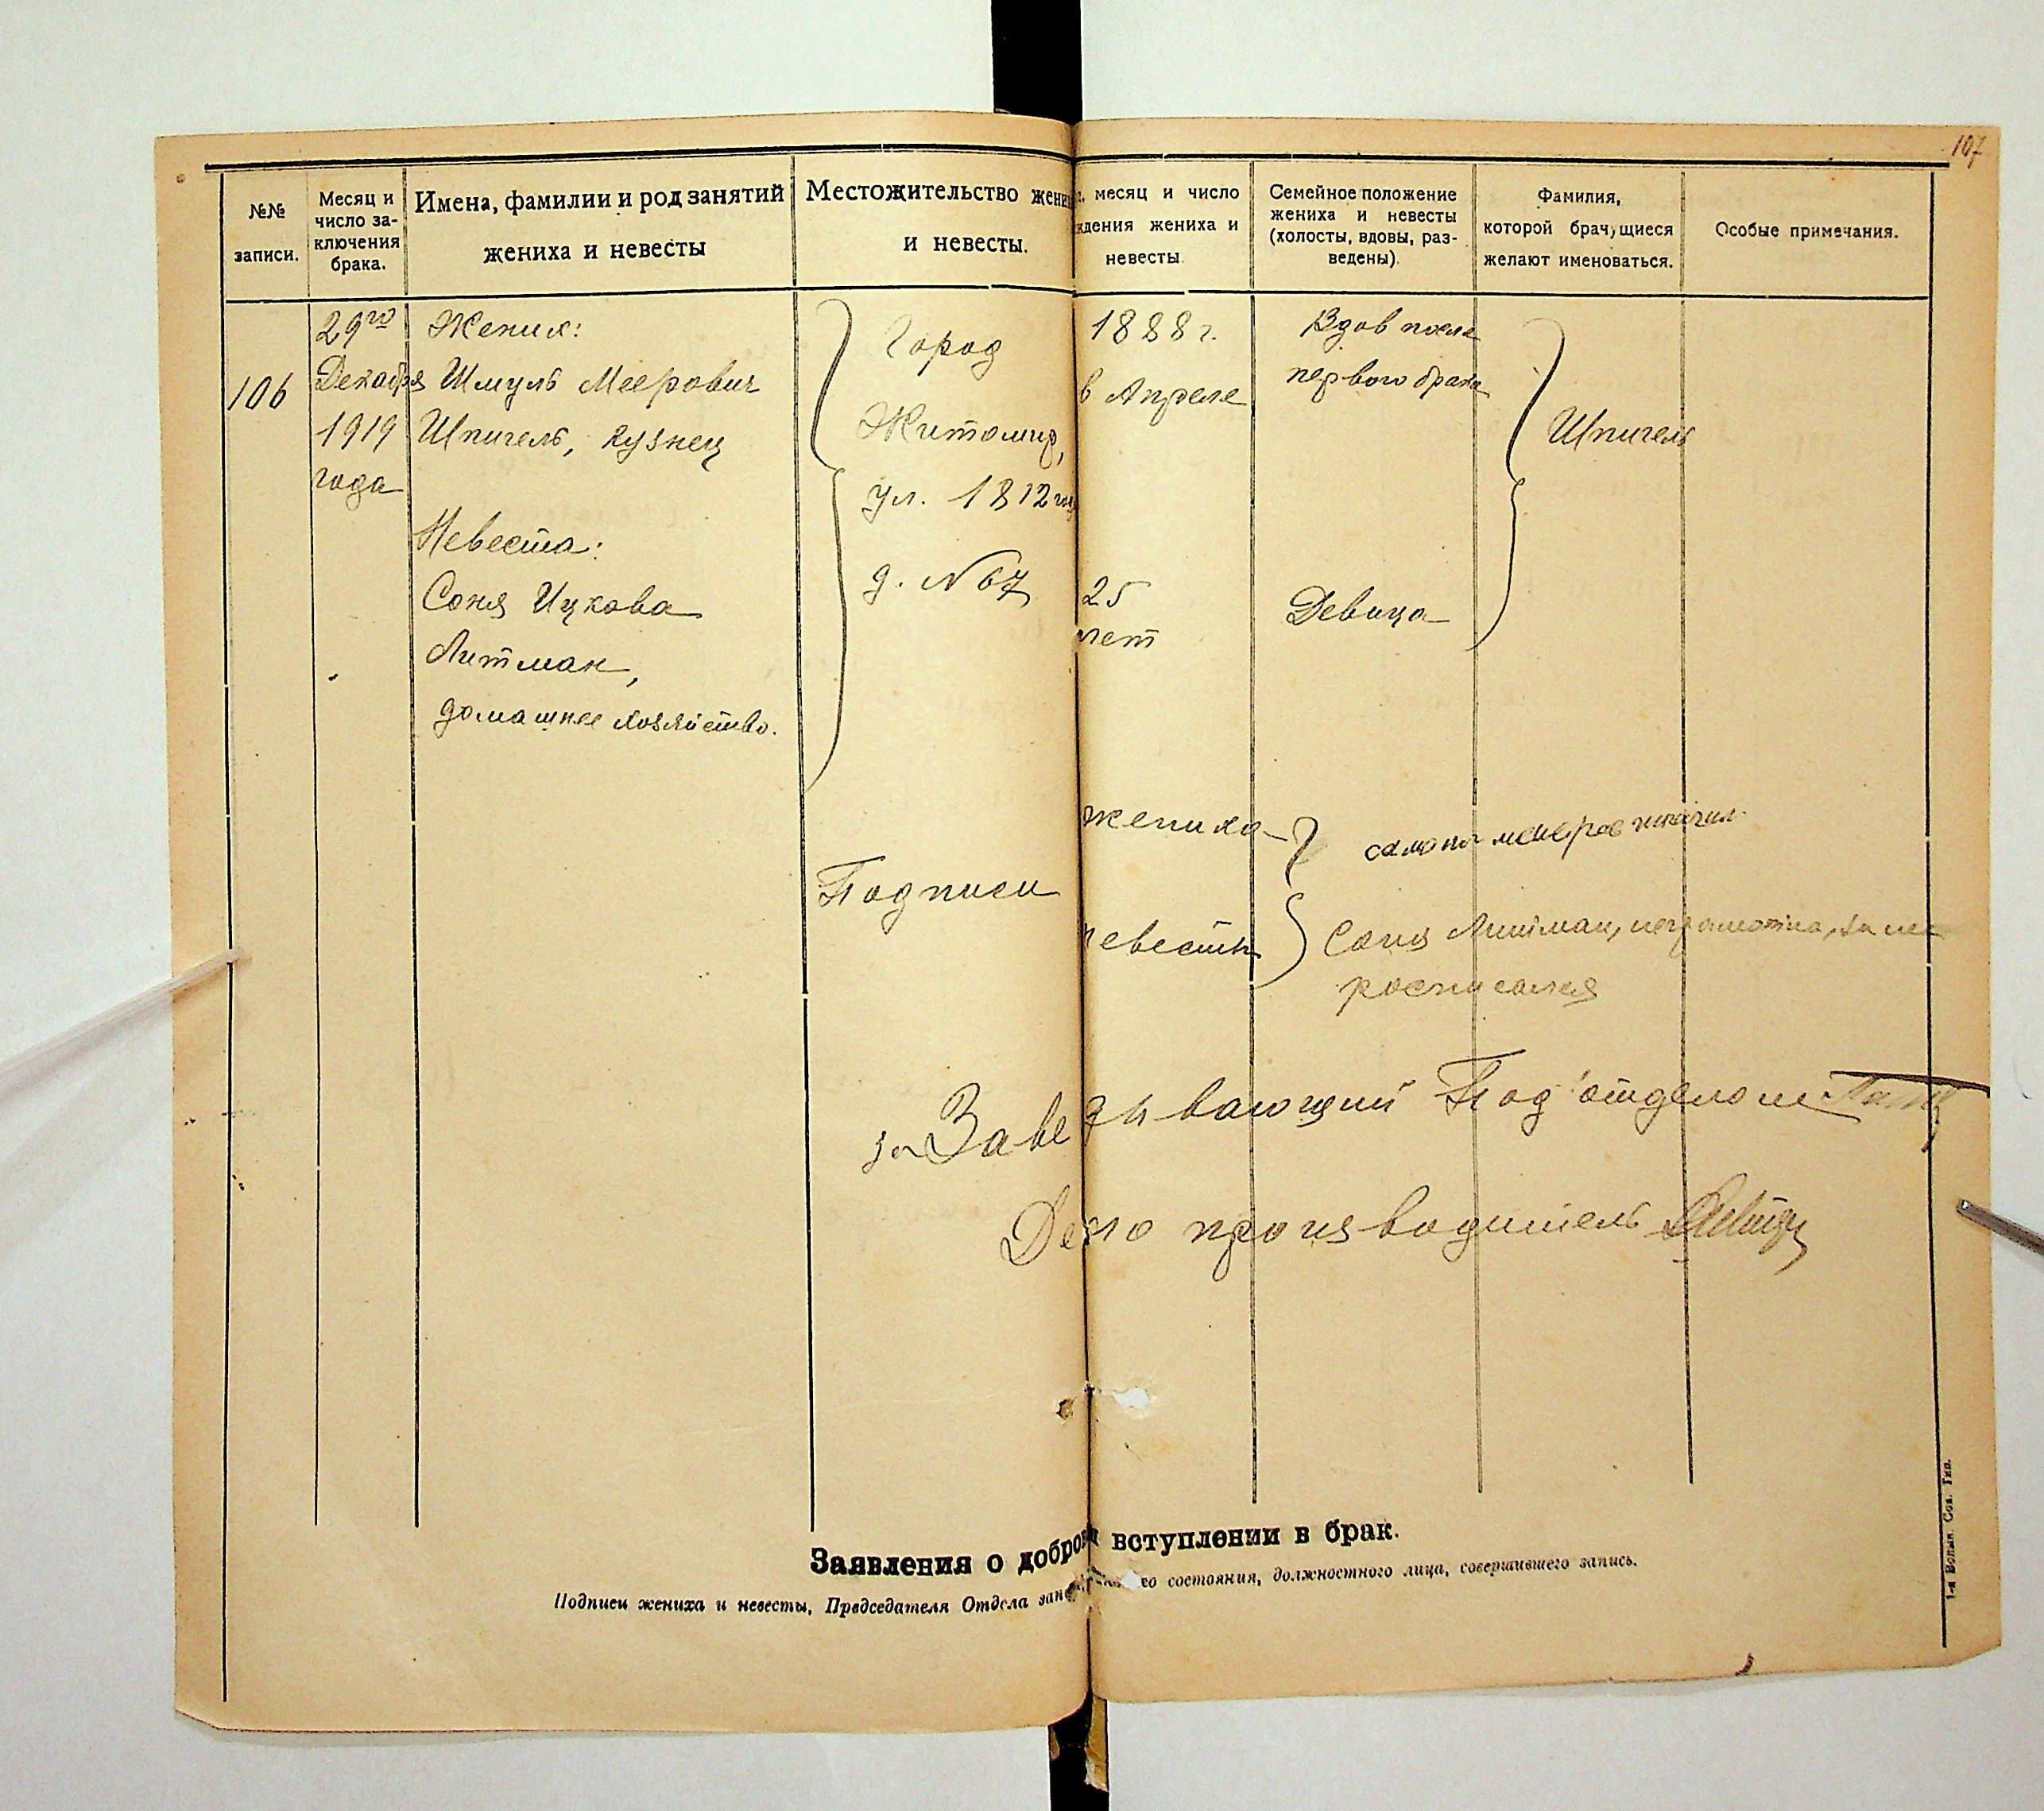 107
№№
записи.
Месяц и
число за-
ключения
брака.
Имена, фамилии и род занятий
жениха и невесты
Местожительство жени
и невесты.
месяц и число
ждения жениха и
невесты.
Семейное положение
жениха и невесты
(холосты, вдовы, раз-
ведены).
Фамилия,
которой брачущиеся
желают именоваться.
Особые примечания.
106
29го
Декабря
1919
года
Жених:
Шмуль Меерович
Шпигель, кузнец
Невеста:
Соня Ицкова
Литман,
домашнее хозяйство.
Город
Житомир,
ул. 1812 год
д. № 67
1888 г.
в Апреле
25
лет
Вдов после
первого брака
Девица
Шпигель
Подписи
жениха
невесты
Соня Литман, неграмотна, за нее
росписался
за Заведывающий Под'отделом
Делопроизводитель
Заявления о добров вступлении в брак.
Подписи жениха и невесты, Председателя Отдела запи го состояния, должностного лица, совершившего запись.
1-я Волын. Сов. Тип.